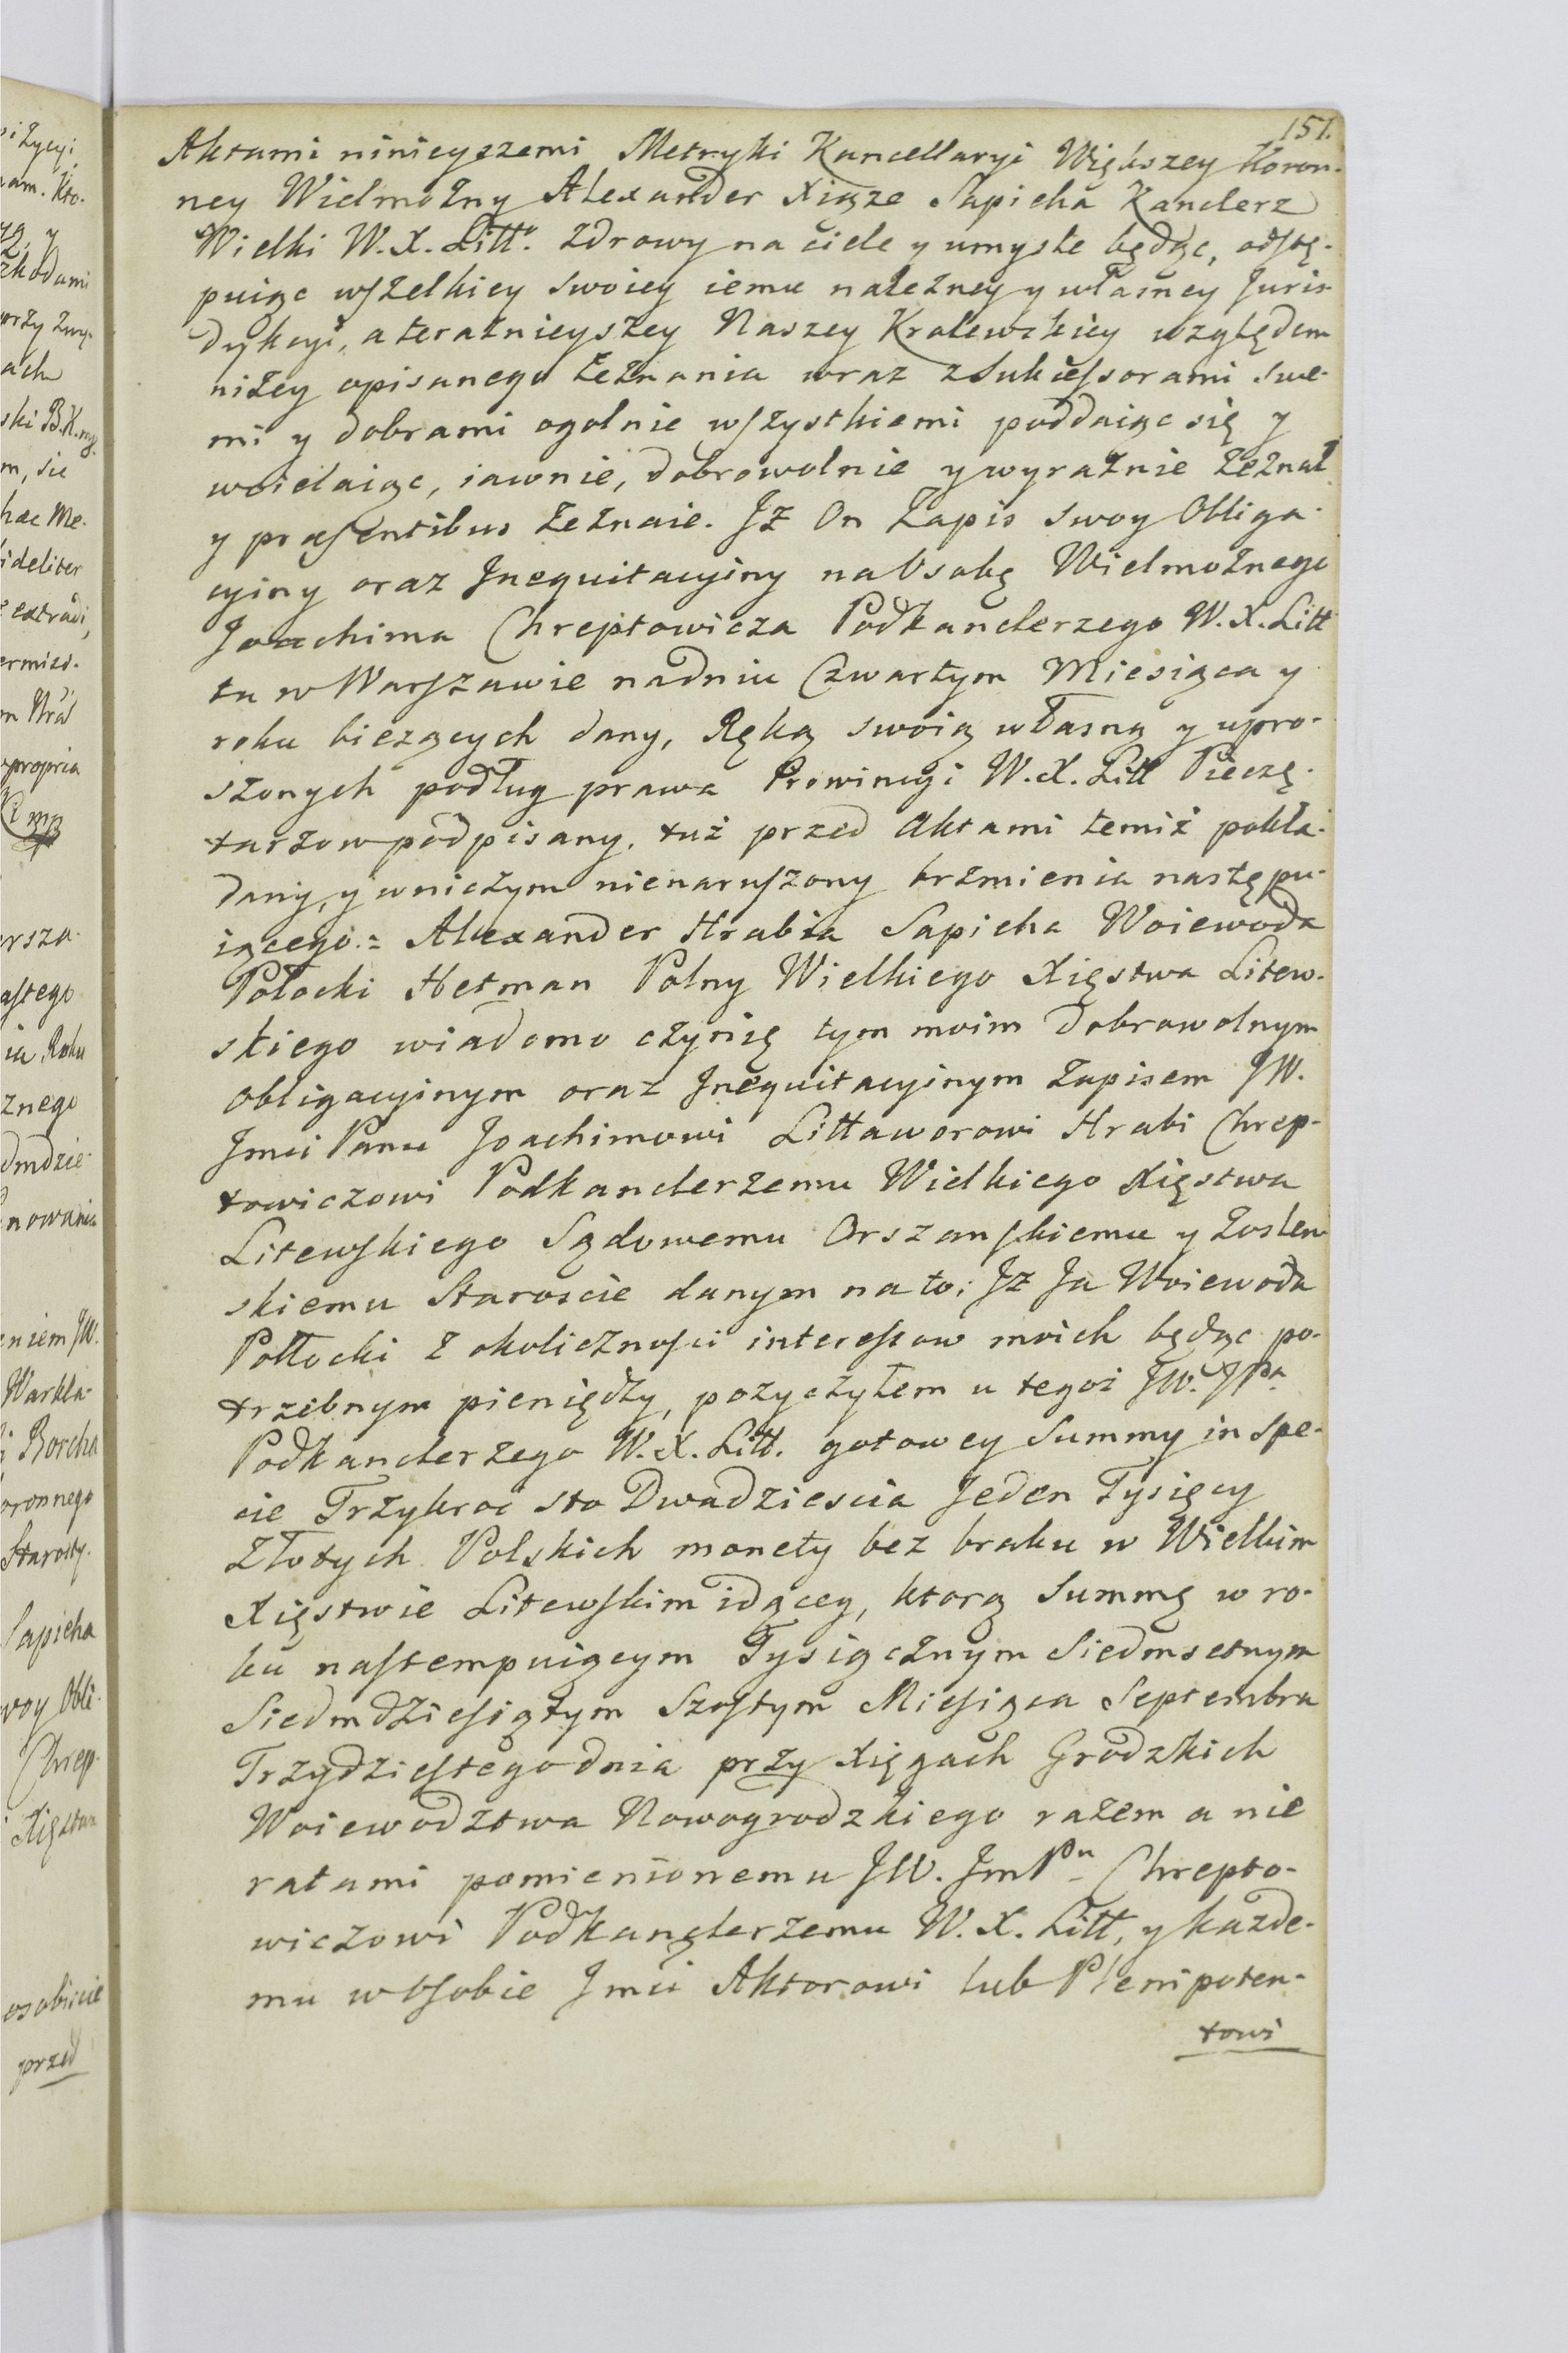 151.
Aktami ninieyszemi Metryki Kancellaryi Większey Koron-
ney Wielmożny Alexander Xiąże Sapieha Kanclerz
Wielki W. X. Litt. zdrowy na ciele y umyśle będąc, odstę-
puiąc wszelkiey swoiey iemu należney y własney Juris-
dykcyi, a teraźnieyszey Naszey Krolewskiey względem
niżey opisanego zeznania wraz z Sukcessorami swe-
mi y dobrami ogolnie wszystkiemi poddaiąc się y
wcielaiąc, iawnie, dobrowolnie y wyraźnie zeznał
y præsentibus zeznaie. Jż On Zapis swoy Obliga-
cyiny oraz Jnequitacyiny na Osobę Wielmożnego
Joachima Chreptowicza Podkanclerzego W. X. Litt
tu w Warszawie na dniu Czwartym Miesiąca y
roku bieżących dany, Ręką swoią własną y upro-
szonych podług prawa Prowincyi W. X. Litt Pieczę-
tarzow podpisany, tuż przed Aktami temiż pokła-
dany, y w niczym nienaruszony brzmienia następu-
iącego.= Alexander Hrabia Sapieha Woiewoda
Połocki Hetman Polny Wielkiego Xięstwa Litew-
skiego wiadomo czynię tym moim dobrowolnym
obligacyinym oraz Jnequitacyinym Zapisem JW.
Jmci Panu Joachimowi Littaworowi Hrabi Chrep-
towiczowi Podkanclerzemu Wielkiego Xięstwa
Litewskiego Sądowemu Orszanskiemu y
skiemu Staroscie danym na to; Jż Ja Woiewoda
Połłocki z okoliczności interessow moich będąc po-
trzebnym pieniędzy, pożyczyłem u tegoż JW. JPa
Podkanclerzego W. X. Litt. gotowey Summy in spe-
cie Trzykroć sto Dwadziescia Jeden Tysięcy
Złotych Polskich monety bez braku w Wielkim
Xięstwie Litewskim idącey, ktorą Summę w ro-
ku nastempuiącym Tysiącznym Siedmsetnym
Siedmdziesiątym Szostym Miesiąca Septembra
Trzydziestego dnia przy Xięgach Grodzkich
Woiewodztwa Nowogrodzkiego razem a nie
ratami pomienionemu JW. JmPu Chrepto-
wiczowi Podkanclerzemu W. X. Litt, y każde-
mu w Osobie Jmci Aktorowi lub Plenipoten-
towi